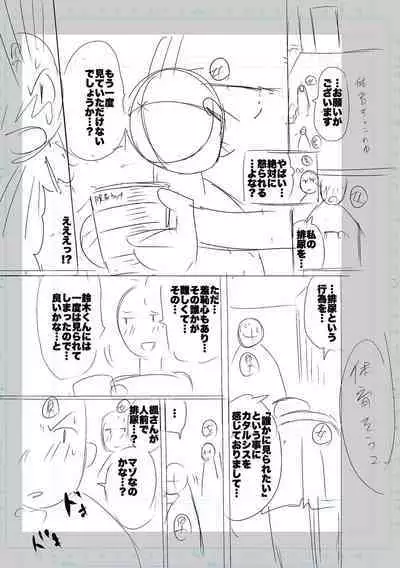 …お願いが
ございます
やばい…
絶対に
怒られる
…よな？
私の
排尿を…
もう一度
見ていただけない
でしょうか…？
えええっ!?
…排尿という
行為を…
『誰かに見られたい』
という事に
カタルシスを
感じておりまして…
ただ…
羞恥心もあり…
その誰かが
難しくて…
その…
鈴木くんには
一度は見られて
しまったので…
良いかな…と
…
…
楓さんが
人前で
排尿…？
マゾなの
かな…？
ドキ
ドキ